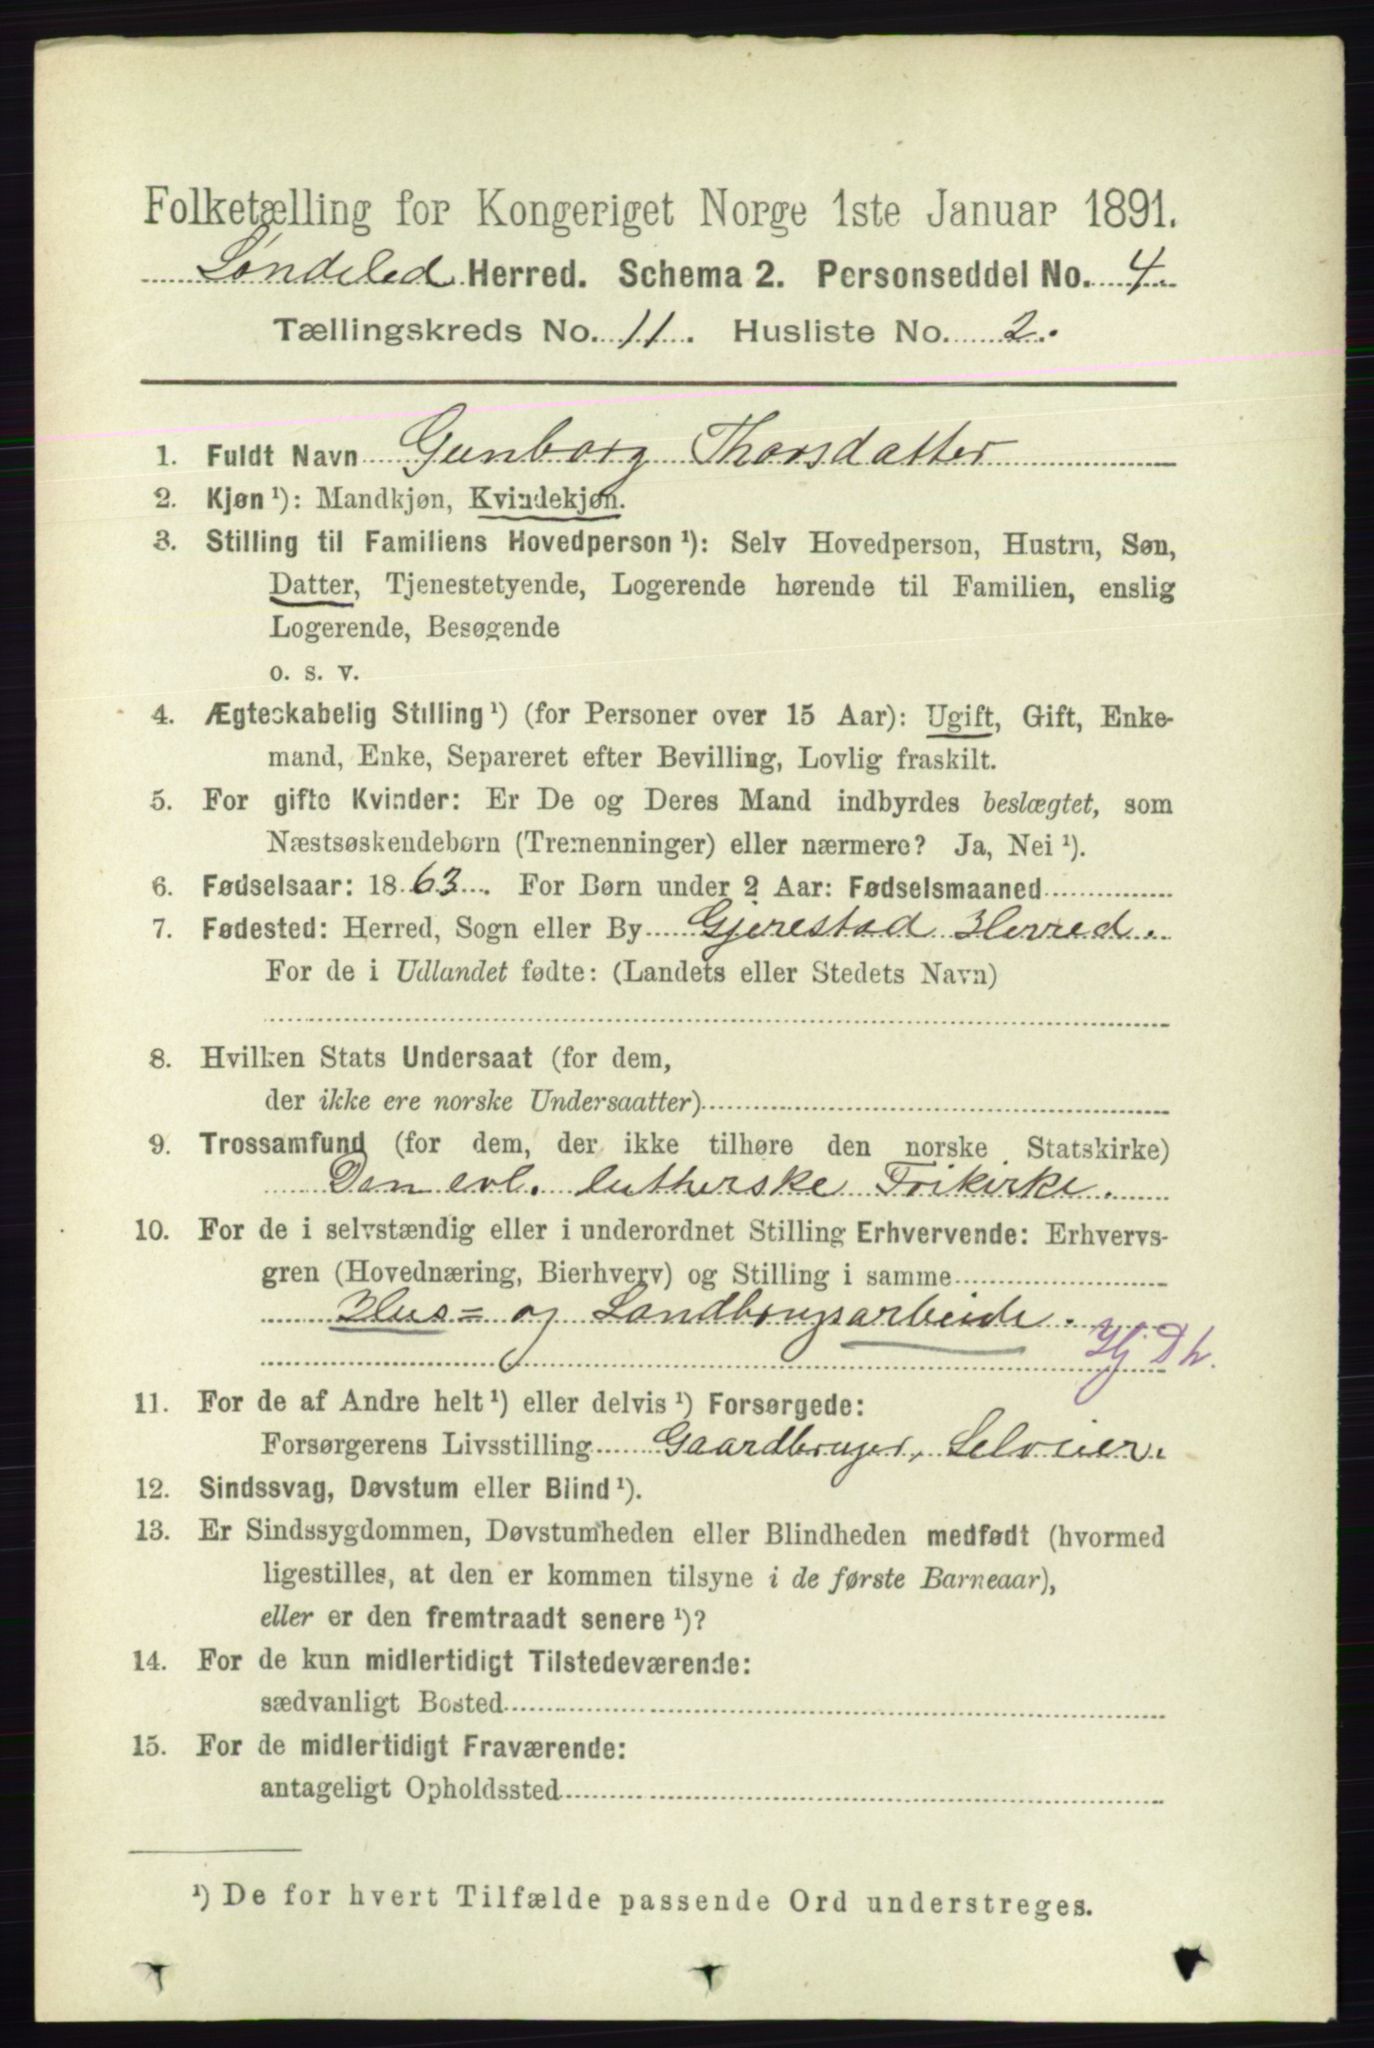 Folketælling for Kongeriget Norge 1ste Januar 1891.
Søndeled Herred. Schema 2. Personseddel No. 4
Tællingskreds No. 11. Husliste No. 2.
1. Fuldt Navn Gunborg Thorsdatter
2. Kjøn ¹): Mandkjøn, Kvindekjøn.
3. Stilling til Familiens Hovedperson ¹): Selv Hovedperson, Hustru, Søn,
Datter, Tjenestetyende, Logerende hørende til Familien, enslig
Logerende, Besøgende
o. s. v.
4. Ægteskabelig Stilling ¹) (for Personer over 15 Aar): Ugift, Gift, Enke-
mand, Enke, Separeret efter Bevilling, Lovlig fraskilt.
5. For gifte Kvinder: Er De og Deres Mand indbyrdes beslægtet, som
Næstsøskendebørn (Tremenninger) eller nærmere? Ja, Nei ¹).
6. Fødselsaar: 1863. For Børn under 2 Aar: Fødselsmaaned
7. Fødested: Herred, Sogn eller By Gjerestad Herred.
For de i Udlandet fødte: (Landets eller Stedets Navn)
8. Hvilken Stats Undersaat (for dem,
der ikke ere norske Undersaatter)
9. Trossamfund (for dem, der ikke tilhøre den norske Statskirke)
Den evl. lutherske Frikirke.
10. For de i selvstændig eller i underordnet Stilling Erhvervende: Erhvervs-
gren (Hovednæring, Bierhverv) og Stilling i samme
Hus= og Landbrugsarbeide.
Hj Dh.
11. For de af Andre helt ¹) eller delvis ¹) Forsørgede:
Forsørgerens Livsstilling Gaardbruger, Selveier.
12. Sindssvag, Døvstum eller Blind ¹).
13. Er Sindssygdommen, Døvstumheden eller Blindheden medfødt (hvormed
ligestilles, at den er kommen tilsyne i de første Barneaar),
eller er den fremtraadt senere ¹)?
14. For de kun midlertidigt Tilstedeværende:
sædvanligt Bosted
15. For de midlertidigt Fraværende:
antageligt Opholdssted
¹) De for hvert Tilfælde passende Ord understreges.